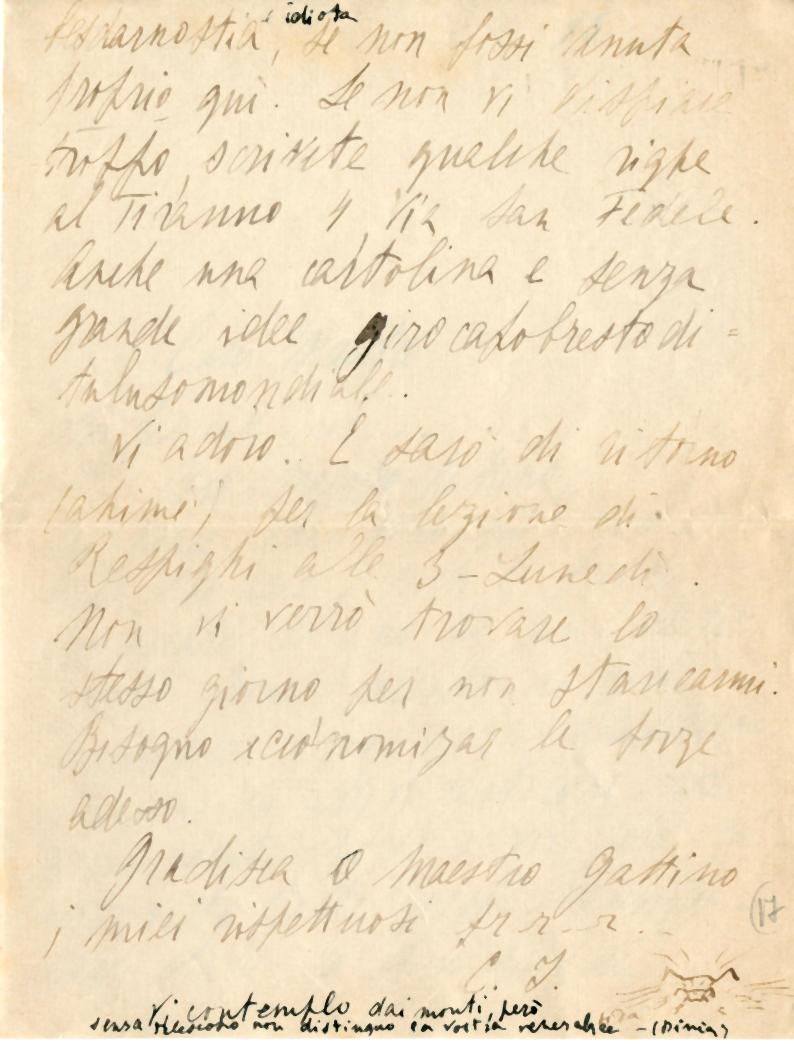 idiota
, se non fossi venuta
proprio quì. Se non vi dispiace
troppo, scrivete qualche righe
al Tiranno 4 Via San Fedele.
Anche una cartolina e senza
grande idee girocapobrestodi=
tulusomondiale.
Vi adoro. E sarò di ritorno
(ahimè) per la lezione di
Respighi alle 3 - Lunedì.
Non vi verrò trovare lo
stesso giorno per non stancarmi.
Bisogno economizar le forze
adesso.
Gradisca O Maestro Gattino
i miei rispettuosi frr-r...
17
Vi contemplo dai monti, però
senza non distinguo la vostra - (Divia)